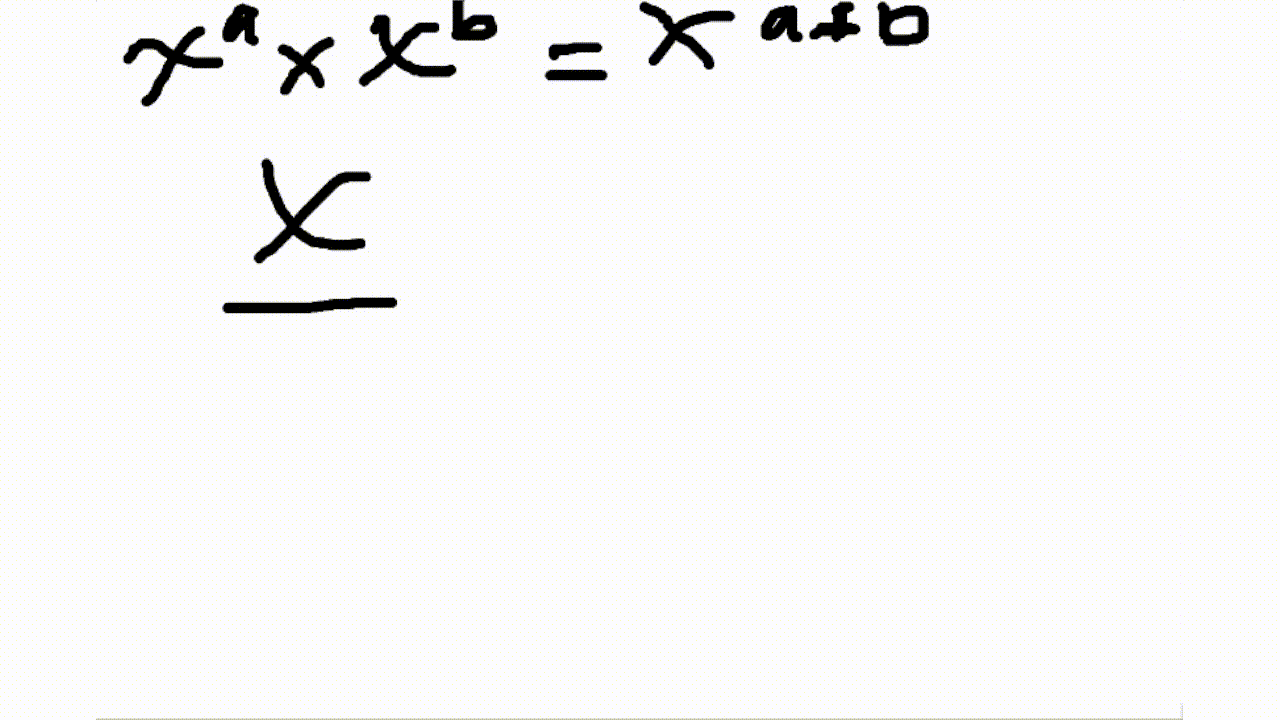 xᵃ × xᵇ = xᵃ⁺ᵇ
x